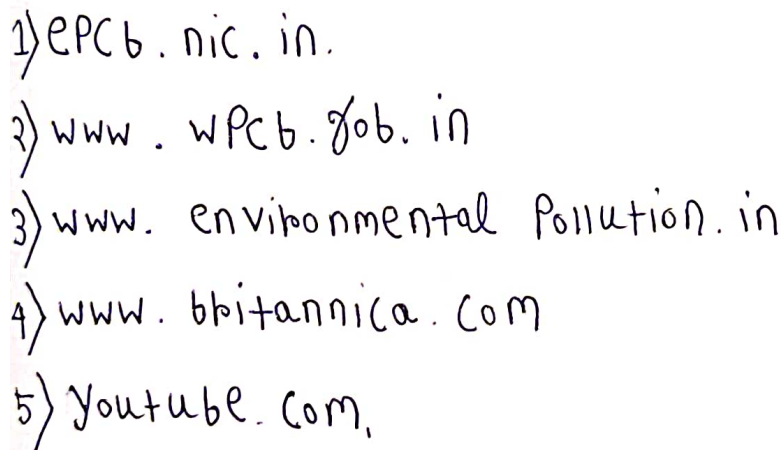 1) ePCb. nic. in.
2) www. wPcb. gob. in
3) www. environmental Pollution. in
4) www. britannica. com
5) Youtube. com.